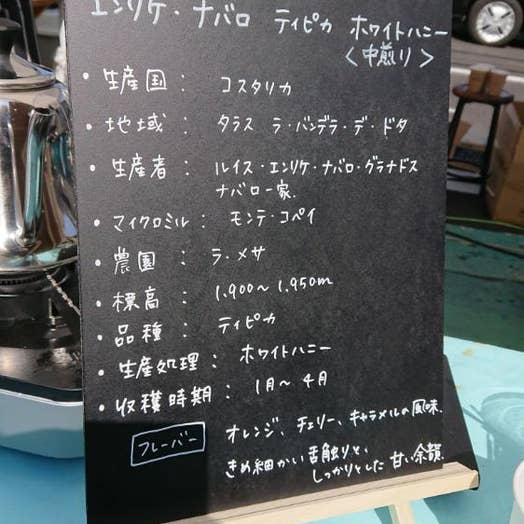 エンリケ・ナバロ ティピカ ホワイトハニー
<中煎り>
・生産国: コスタリカ
・地域: タラス ラ・バンデラ・デ・ドタ
・生産者: ルイス・エンリケ・ナバロ・グラナドス
ナバロ一家.
・マイクロミル: モンテ・コペイ
・農園: ラ・メサ
・標高: 1.900〜1.950m
・品種: ティピカ
・生産処理: ホワイトハニー
・収穫時期: 1月〜4月
フレーバー オレンジ、チェリー、キャラメルの風味.
きめ細かい舌触りと、
しっかりとした甘い余韻.